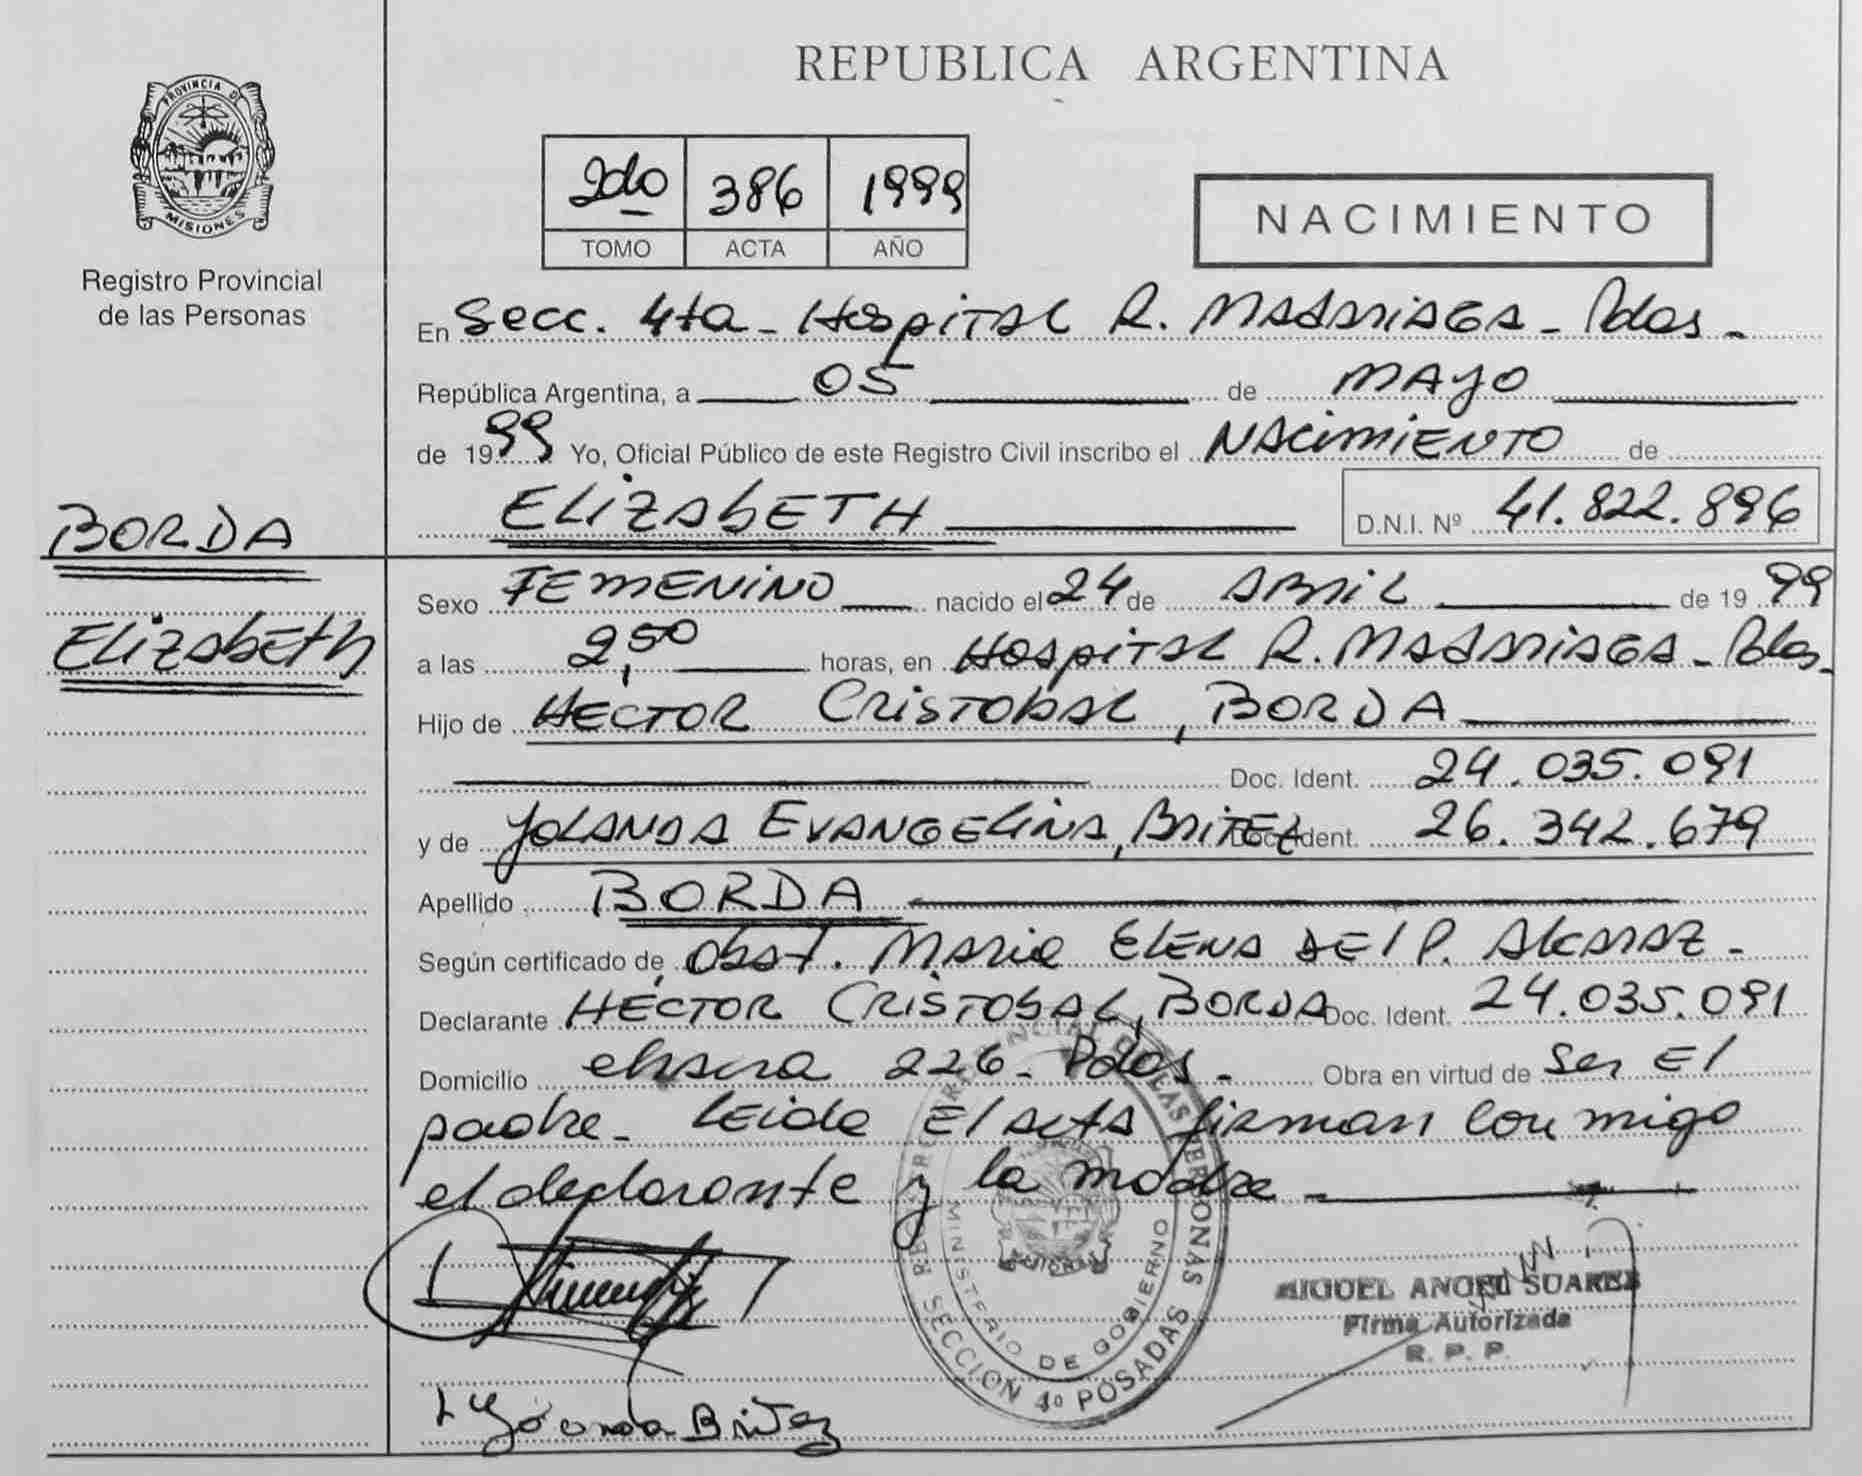 REPUBLICA ARGENTINA
PROVINCIA DE
MISIONES
Registro Provincial
de las Personas
2do 386 1999
TOMO ACTA AÑO
NACIMIENTO
En Secc. 4ta - Hospital R. Madariaga - Pdas -
República Argentina, a 05 de MAYO
de 1999 Yo, Oficial Público de este Registro Civil inscribo el NACIMIENTO de
ELIZABETH D.N.I. Nº 41.822.896
BORDA
Elizabeth
Sexo FEMENINO nacido el 24 de Abril de 1999
a las 2,50 horas, en Hospital R. Madariaga - Pdas -
Hijo de HECTOR CRISTOBAL, BORDA
Doc. Ident. 24.035.091
y de YOLANDA EVANGELINA, BRITEZ Doc. Ident. 26.342.679
Apellido BORDA
Según certificado de Obst. Maria Elena del P. Alcaraz -
Declarante HECTOR CRISTOBAL, BORDA Doc. Ident. 24.035.091
Domicilio 226 - Pdas - Obra en virtud de ser el
padre - Leida el acta firman conmigo
el declarante y la madre -
REGISTRO PROVINCIAL DE LAS PERSONAS
MINISTERIO DE GOBIERNO
SECCION 4º POSADAS
MIGUEL ANGEL SUAREZ
Firma Autorizada
R. P. P.
Yolanda Britez